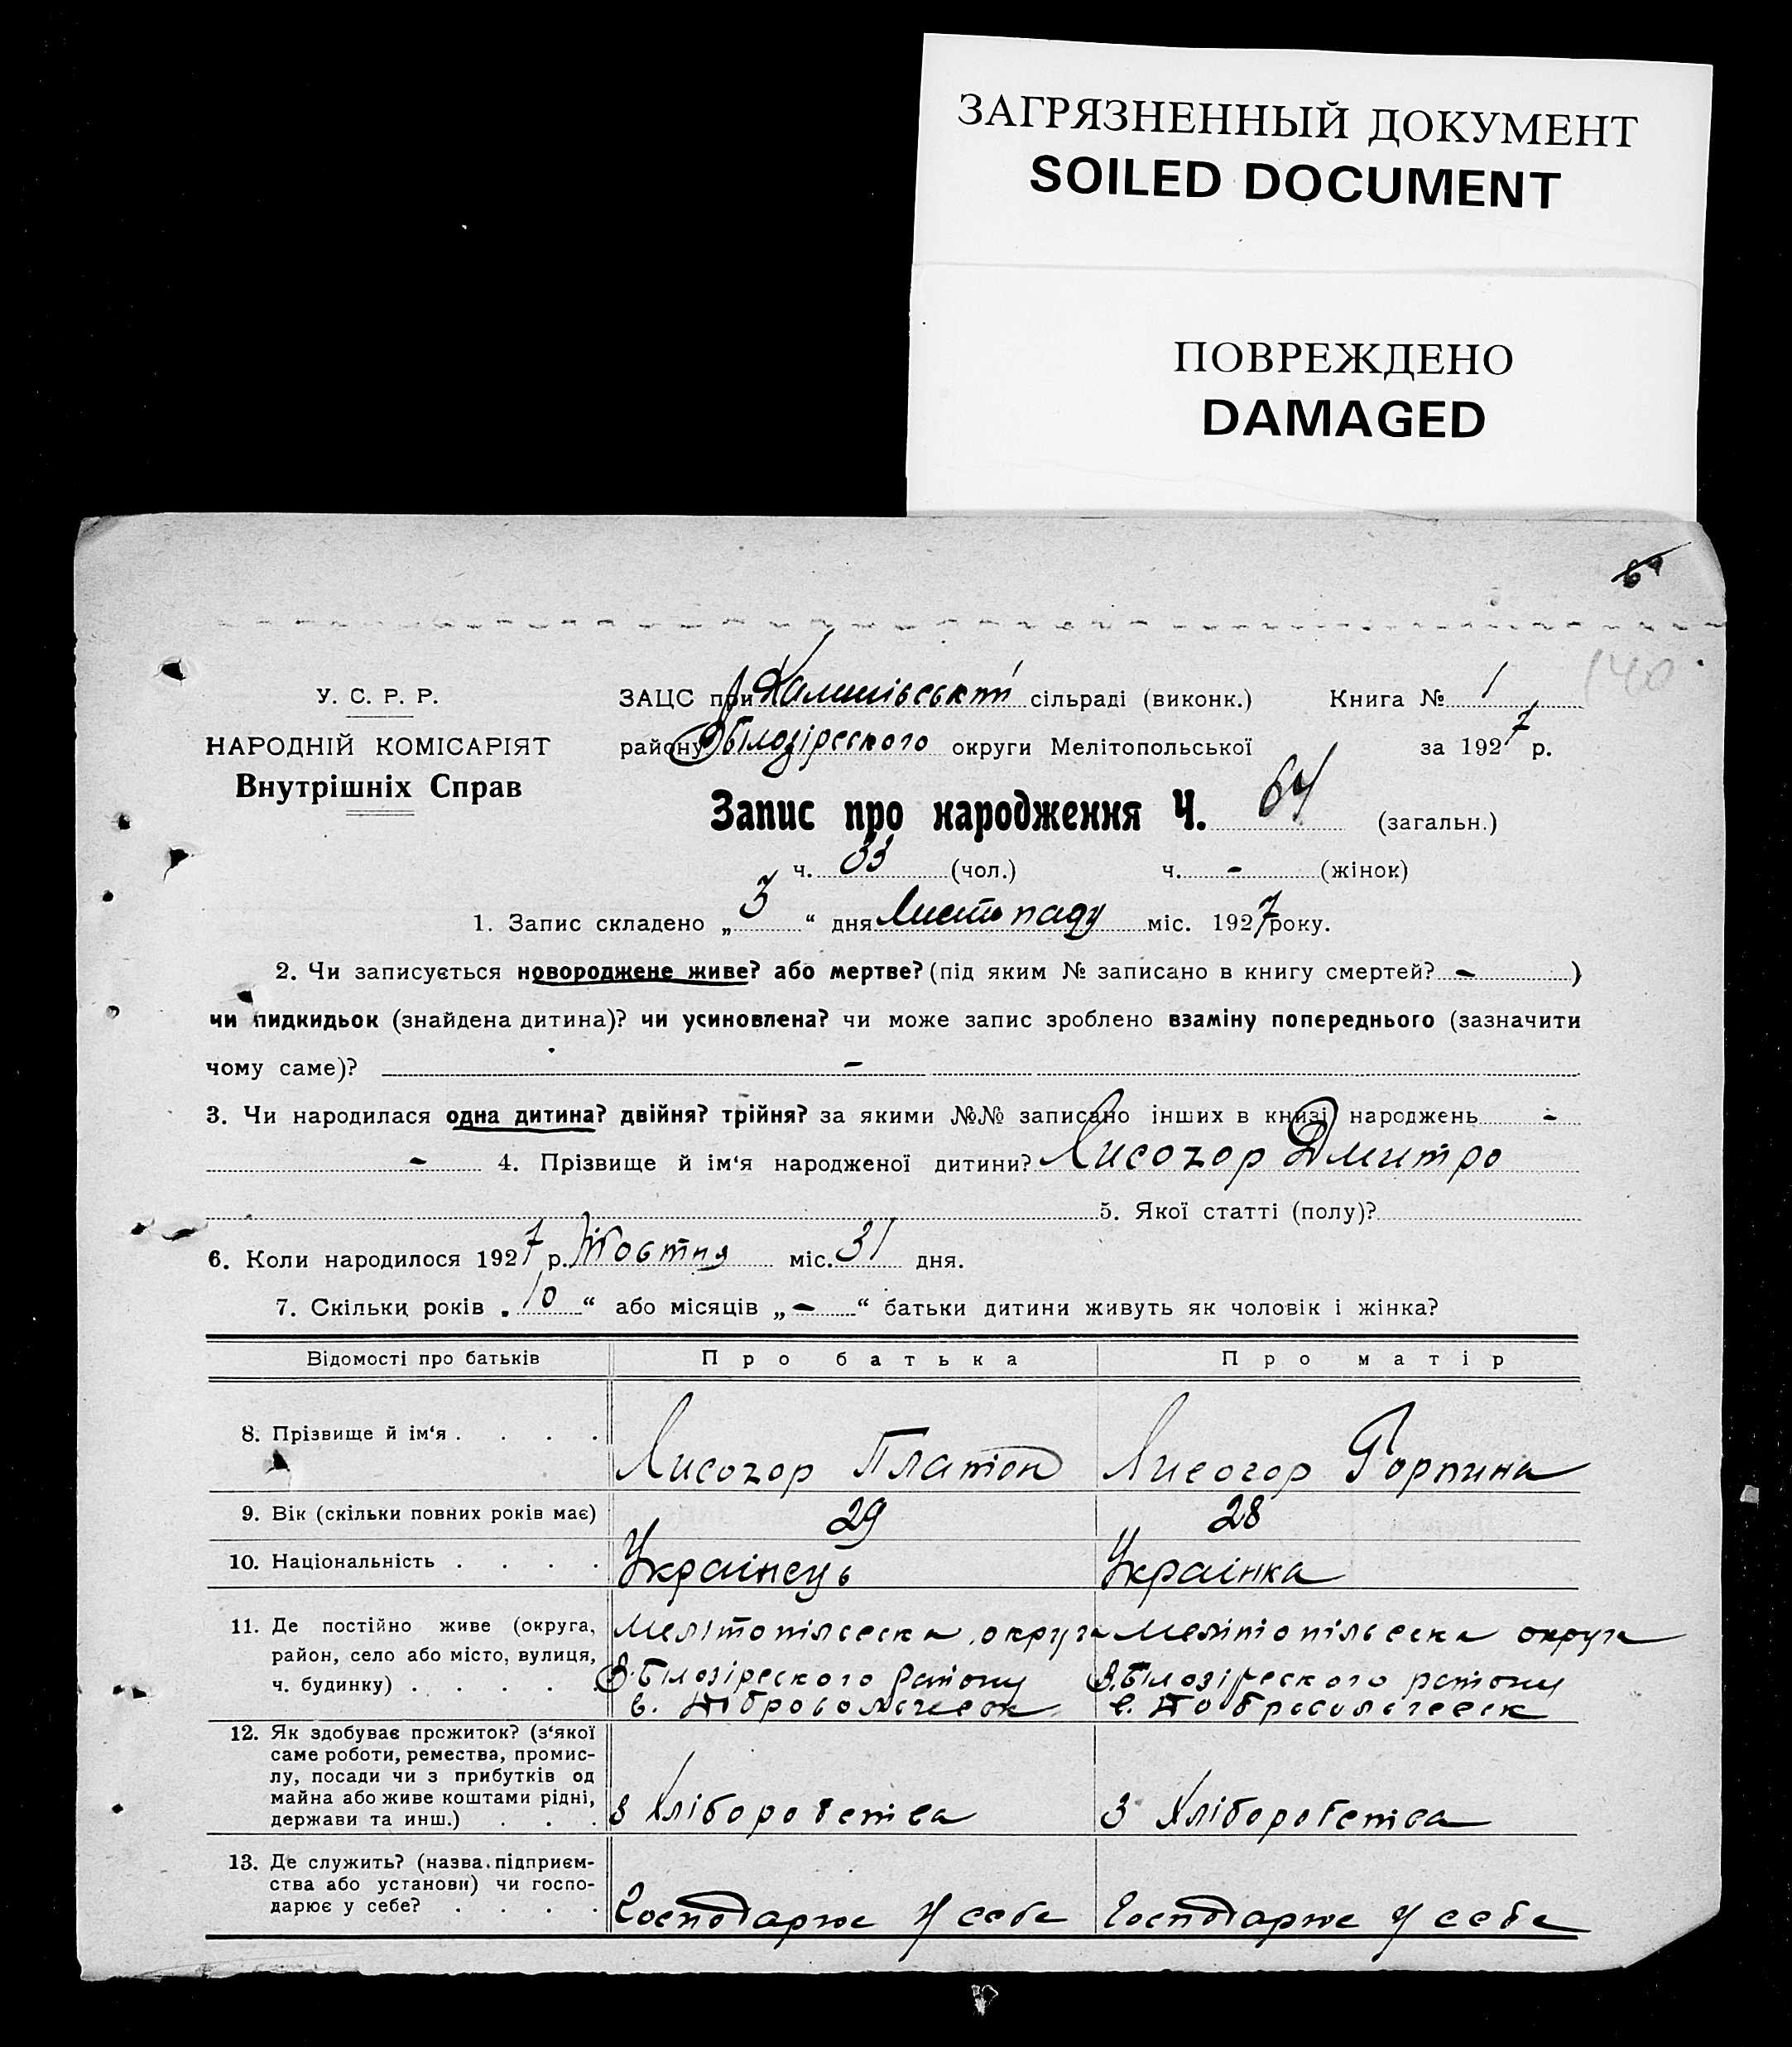 ЗАГРЯЗНЕННЫЙ ДОКУМЕНТ
SOILED DOCUMENT
ПОВРЕЖДЕНО
DAMAGED
140
У. С. Р. Р.
НАРОДНІЙ КОМІСАРІЯТ
Внутрішніх Справ
ЗАЦС при сільраді (виконк.) Книга № 1
району В Білозірського округи Мелітопольської за 1927 р.
Запис про народження Ч. 64 (загальн.)
ч. 33 (чол.) ч. - (жінок)
1. Запис складено „ 3 “ дня Листопаду міс. 1927 року.
2. Чи записується новороджене живе? або мертве? (під яким № записано в книгу смертей? - )
чи пидкидьок (знайдена дитина)? чи усиновлена? чи може запис зроблено взаміну попереднього (зазначити
чому саме)? -
3. Чи народилася одна дитина? двійня? трійня? за якими №№ записано інших в книзі народжень -
- 4. Прізвище й ім‘я народженої дитини? Лисогор Дмитро
5. Якої статті (полу)?
6. Коли народилося 1927 р. Жовтня міс. 31 дня.
7. Скільки років „ 10 “ або місяців „ - “ батьки дитини живуть як чоловік і жінка?
Відомості про батьків Про батька Про матір
8. Прізвище й ім‘я . . . . Лисогор Платон Лисогор Горпина
9. Вік (скільки повних років має) 29 28
10. Національність . . . . Украінець Украінка
11. Де постійно живе (округа, район, село або місто, вулиця, ч. будинку) . . . . . Мелітопілсска округа Мелітопільсска округа
В. Білозірського району В. Білозірського району
12. Як здобуває прожиток? (з‘якої саме роботи, ремества, промислу, посади чи з прибутків од майна або живе коштами рідні, держави та инш.) . . . З Хліборобства З Хліборобства
13. Де служить? (назва підприємства або установи) чи господарює у себе? . . . . Господарює У себе Господарює У себе